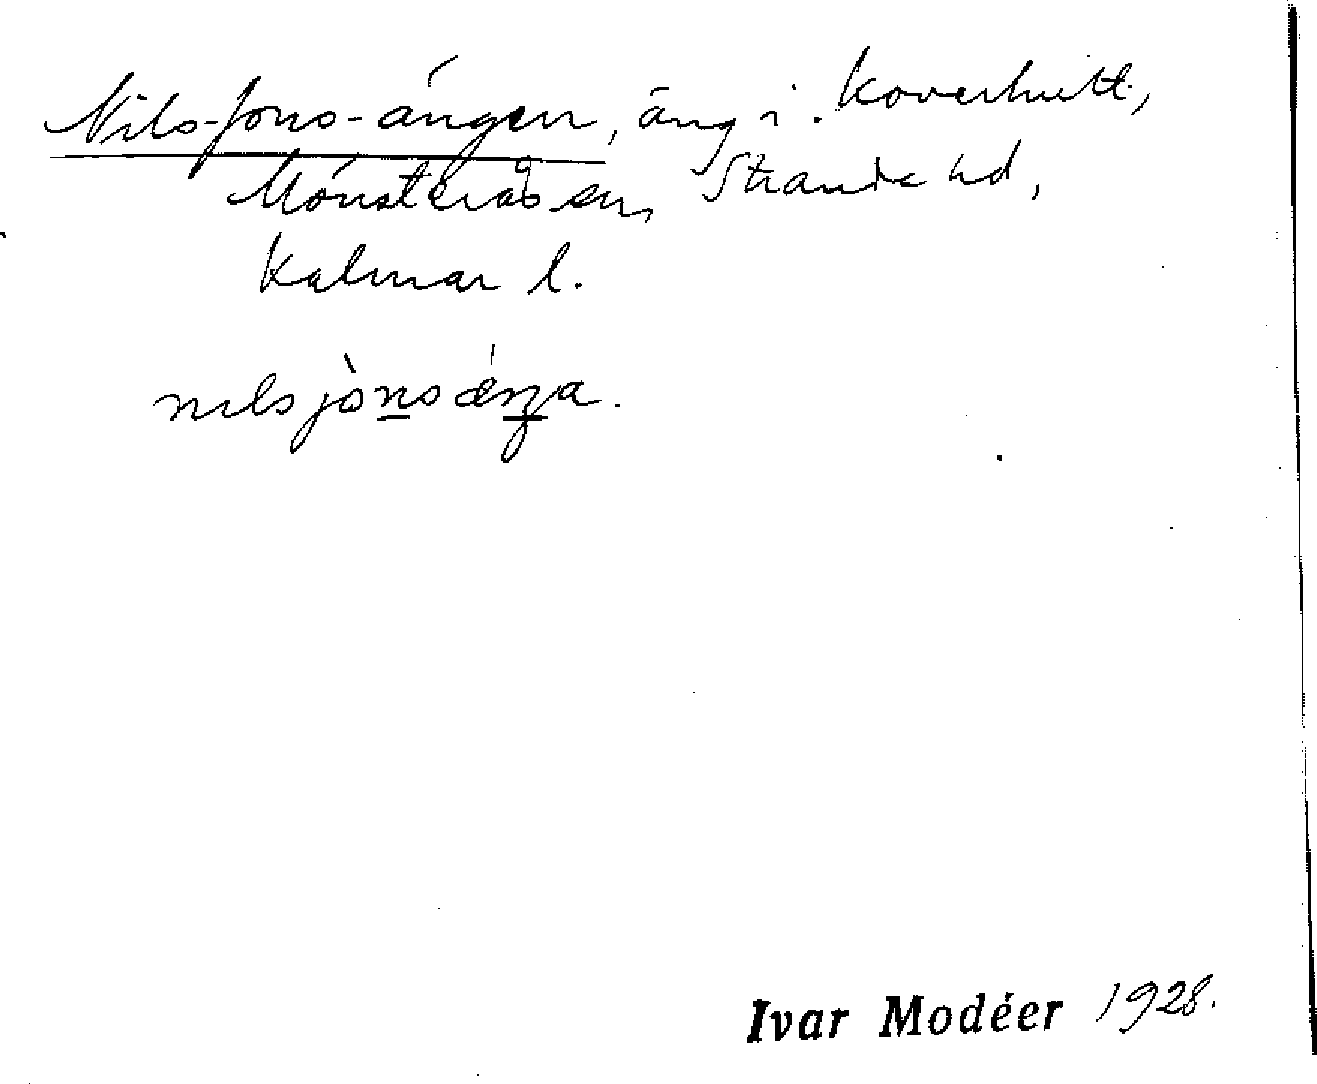 Nils-Jons-ängen, äng i Koverhult,
Mönsterås sn, Stranda hd,
Kalmar l.
nils jònsǽŋa.
Ivar Modéer 1928.